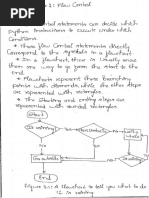 2: Flow Control
Control statements can decide which
Python Instructions to execute under which
Conditions.
• These flow Control statements directly
Correspond to the symbols in a flowchart
• In a flowchart, there is usually more
than one way to go from the start to the
End.
• Flowcharts represent these branching
points with diamonds, while the other steps
are represented with rectangles.
• The Starting and ending steps are
represented with rounded rectangles.
Start
Is raining
Yes
No
Go outside
End
A flowchart to tell you what to do
is raining